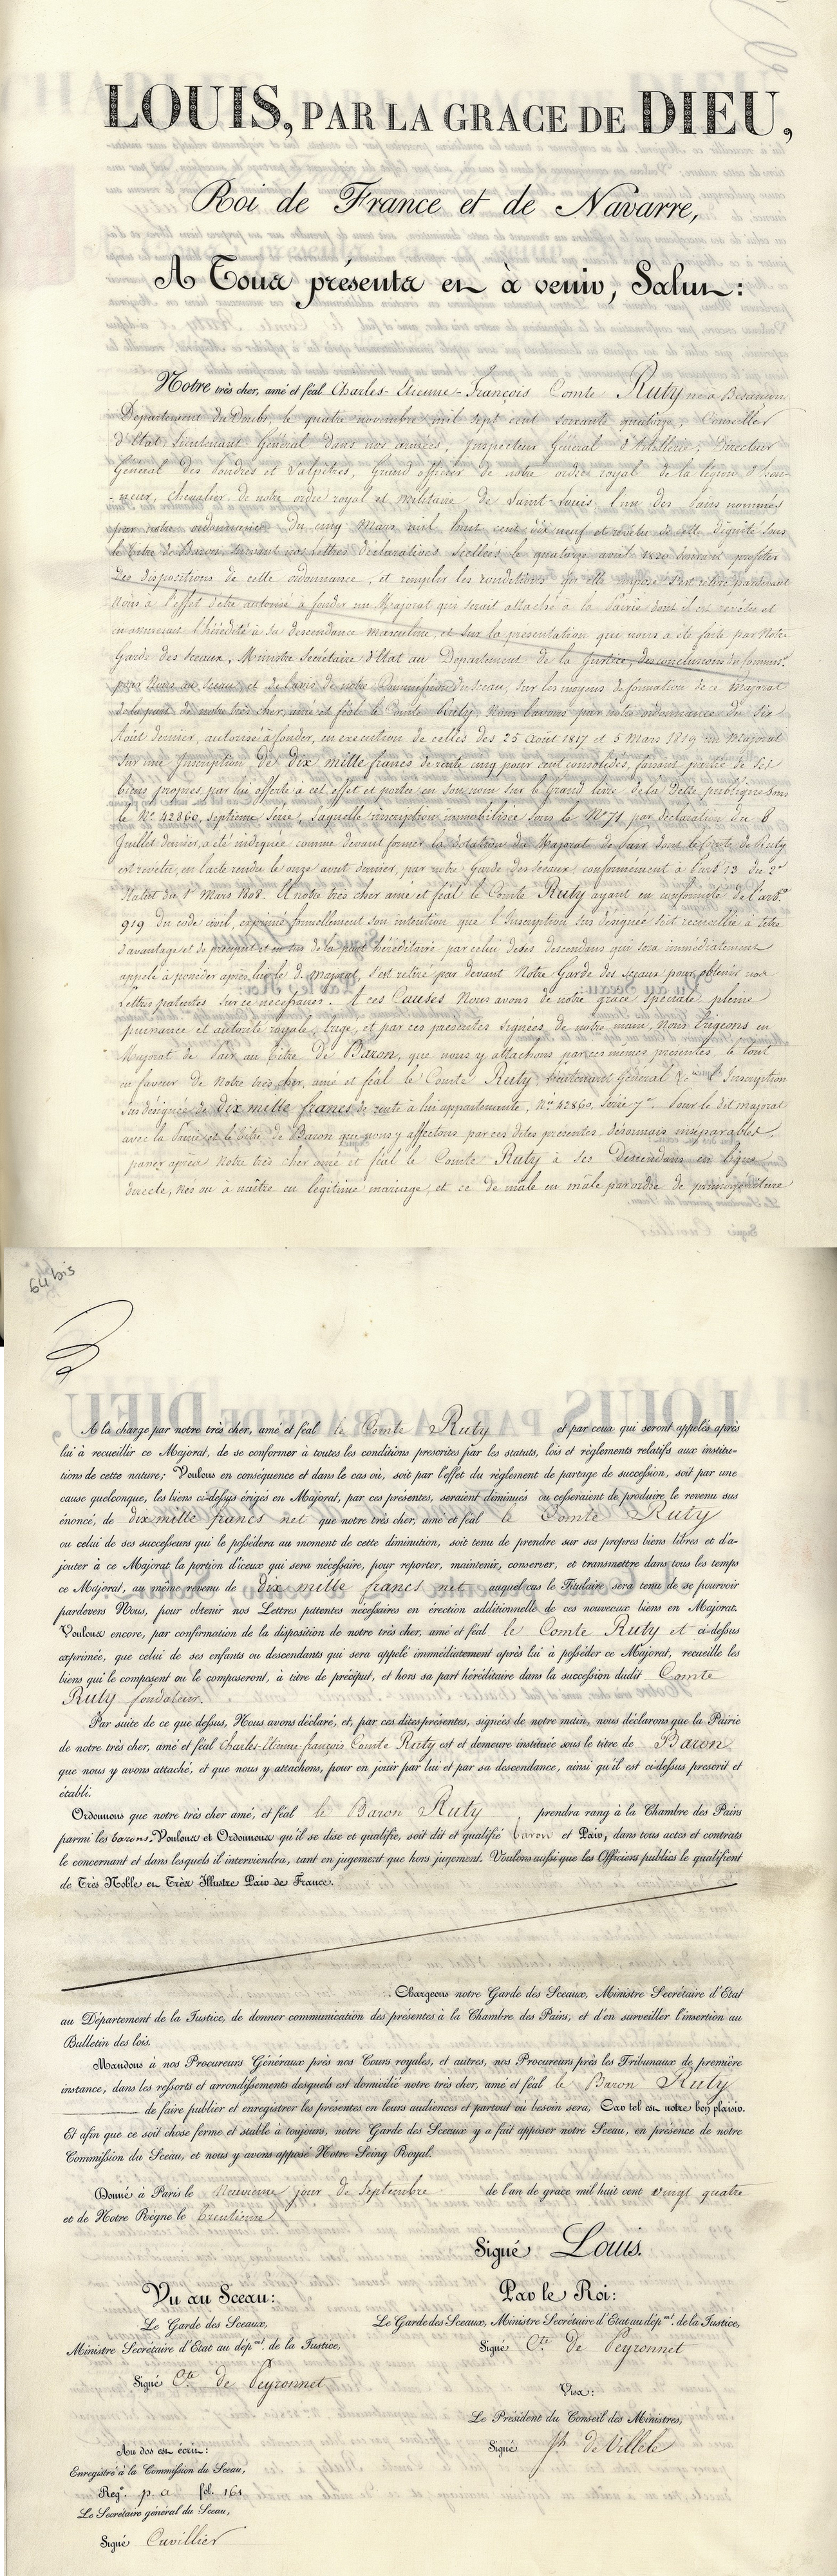 LOUIS, PAR LA GRACE DE DIEU,
Roi de France et de Navarre,
A Tous présents et à venir, Salut:
Notre très cher, amé et féal Charles-Etienne-François Comte Ruty né à Besançon
Département du Doubs, le quatre novembre mil sept cent soixante quatorze, Conseiller
d'Etat, Lieutenant Général dans nos armées, Inspecteur Général d'Artillerie, Directeur
Général des Poudres et Salpêtres, Grand officier de notre ordre royal de la légion d'hon-
-neur, chevalier de notre ordre royal et militaire de Saint-Louis, l'un des Pairs nommés
par notre ordonnance du cinq Mars mil huit cent dix neuf et revêtu de cette dignité sous
le titre de Baron suivant nos lettres déclaratives scellées le quatorze avril 1820 désirant profiter
des dispositions de cette ordonnance, et remplir les conditions qu'elle impose s'est retiré pardevant
Nous à l'effet d'être autorisé à fonder un Majorat qui serait attaché à la Pairie dont il est revêtu et
en assurerait l'hérédité à sa descendance masculine, et sur la présentation que nous a été faite par Notre
Garde des Sceaux, Ministre Secrétaire d'Etat au Département de la Justice, des conclusions du Commiss.re
pour Nous au sceau et de l'avis de notre Commission du sceau, sur les moyens de formation de ce Majorat
de la part de notre très cher, amé et féal le Comte Ruty. Nous l'avons par notre ordonnance du six
Août dernier, autorisé à fonder, en exécution de celles des 25 août 1817 et 5 Mars 1819 un Majorat
sur une Inscription de dix mille francs de rente cinq pour cent consolidés, faisant partie de ses
biens propres par lui offerte à cet effet et portée en son nom sur le Grand livre de la Dette publique sous
le N.o 42860, septième série, laquelle inscription immobilisée sous le N.o 71 par déclaration du 6
Juillet dernier, a été indiquée comme devant former la dotation du Majorat de Pair dont le Comte de Ruty
est revêtu, en l'acte rendu le onze août dernier, par notre Garde des Sceaux conformément à l'art. 13 du 2e
Statut du 1er Mars 1808. Et notre très cher amé et féal le Comte Ruty ayant en conformité de l'art.e
919 du code civil, exprimé formellement son intention que l'Inscription sus désignée soit recueillie à titre
d'avantage et de préciput et en sus de la part héréditaire par celui de ses descendans qui sera immédiatement
appelé à posséder après lui le d. majorat, s'est retiré par devant Notre Garde des Sceaux pour obtenir nos
Lettres patentes sur ce nécessaires. A ces Causes Nous avons de notre grâce spéciale pleine
puissance et autorité royale, érigé, et par ces présentes signées de notre main, Nous Erigeons en
Majorat de Pair au titre de Baron, que nous y attachons par ces mêmes présentes, le tout
en faveur de Notre très cher, amé et féal le Comte Ruty, Lieutenant Général &c.a l'Inscription
sus désignée de dix mille francs de rente à lui appartenante, N.o 42860, Série 7e. Pour le dit majorat
avec la Pairie et le titre de Baron que nous y affectons par ces dites présentes, désormais inséparables,
passer après Notre très cher amé et féal le Comte Ruty à ses Descendans en ligne
directe, nés ou à naître en légitime mariage, et ce de mâle en mâle par ordre de primogéniture
64 bis
A la charge par notre très cher, amé et féal le Comte Ruty et par ceux qui seront appelés après
lui à recueillir ce Majorat, de se conformer à toutes les conditions prescrites par les statuts, lois et règlements relatifs aux institu-
tions de cette nature; Voulons en conséquence et dans le cas où, soit par l'effet du règlement de partage de succession, soit par une
cause quelconque, les biens ci-dessus érigés en Majorat, par ces présentes, seraient diminués ou cesseraient de produire le revenu sus
énoncé, de dix mille francs net que notre très cher, amé et féal le Comte Ruty
ou celui de ses successeurs qui le possédera au moment de cette diminution, soit tenu de prendre sur ses propres biens libres et d'a-
jouter à ce Majorat la portion d'iceux qui sera nécessaire, pour reporter, maintenir, conserver, et transmettre dans tous les temps
ce Majorat, au même revenu de dix mille francs net auquel cas le Titulaire sera tenu de se pourvoir
pardevers Nous, pour obtenir nos Lettres patentes nécessaires en érection additionnelle de ces nouveaux biens en Majorat.
Voulons encore, par confirmation de la disposition de notre très cher, amé et féal le Comte Ruty et ci-dessus
exprimée, que celui de ses enfants ou descendants qui sera appelé immédiatement après lui à posséder ce Majorat, recueille les
biens qui le composent ou le composeront, à titre de préciput, et hors sa part héréditaire dans la succession dudit Comte
Ruty fondateur.
Par suite de ce que dessus, Nous avons déclaré, et, par ces dites présentes, signées de notre main, nous déclarons que la Pairie
de notre très cher, amé et féal Charles-Etienne-françois Comte Ruty est et demeure instituée sous le titre de Baron
que nous y avons attaché, et que nous y attachons, pour en jouir par lui et par sa descendance, ainsi qu'il est ci-dessus prescrit et
établi.
Ordonnons que notre très cher amé, et féal le Baron Ruty prendra rang à la Chambre des Pairs
parmi les barons. Voulons et Ordonnons qu'il se dise et qualifie, soit dit et qualifié baron et Pair, dans tous actes et contrats
le concernant et dans lesquels il interviendra, tant en jugement que hors jugement. Voulons aussi que les Officiers publics le qualifient
de Très Noble et Très Illustre Pair de France.
Chargeons notre Garde des Sceaux, Ministre Secrétaire d'Etat
au Département de la Justice, de donner communication des présentes à la Chambre des Pairs, et d'en surveiller l'insertion au
Bulletin des lois.
Mandons à nos Procureurs Généraux près nos Cours royales, et autres, nos Procureurs près les Tribunaux de première
instance, dans les ressorts et arrondissements desquels est domicilié notre très cher, amé et féal le Baron Ruty
de faire publier et enregistrer les présentes en leurs audiences et partout où besoin sera, Car tel est notre bon plaisir.
Et afin que ce soit chose ferme et stable à toujours, notre Garde des Sceaux y a fait apposer notre Sceau, en présence de notre
Commission du Sceau, et nous y avons apposé Notre Seing Royal.
Donné à Paris le Neuvième jour de Septembre de l'an de grace mil huit cent vingt quatre
et de Notre Règne le trentième
Signé Louis.
Vu au Sceau:
Le Garde des Sceaux,
Ministre Secrétaire d'Etat au dép.mt de la Justice,
Signé C.te de Peyronnet
Par le Roi:
Le Garde des Sceaux, Ministre Secrétaire d'Etat au dép.mt de la Justice,
Signé C.te de Peyronnet
Visa:
Le Président du Conseil des Ministres,
Signé Jh. de Villèle
Au dos est écrit:
Enregistré à la Commission du Sceau,
Reg.e p. a fol. 161
Le Secrétaire général du Sceau,
Signé Cuvillier